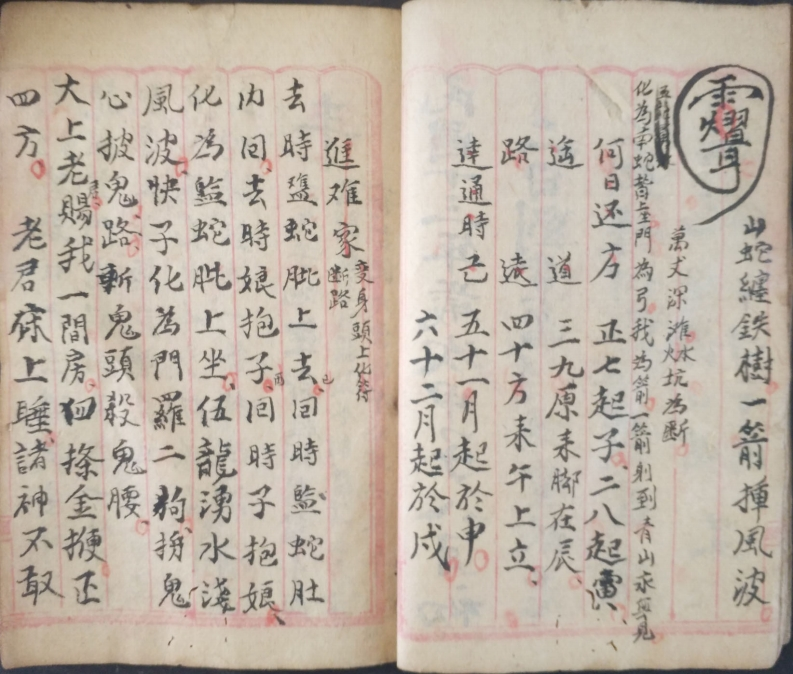 山蛇纏鉄樹一箭揮風波
萬丈深灘水火坑為断
化為南蛇督重門為弓我為箭一箭射到青山永無見
何日还方 正七起子、二八起寅
遥道 三九原来脚在辰、
路遠 四十方来午上立、
達通時 己五十一月起於申
六十二月起於戌
進难家 断路 变身頭上化符
去時盬蛇肶上去回時監蛇肚
内回去時娘抱子回時子抱娘、
化為監蛇肶上坐伍龍湧水淺
風波快子化為門羅二狗扮鬼
心披鬼路斬鬼頭殺鬼腰、
大上老君賜我一間房四條金揵正
四方。老君床上睡諸神不敢